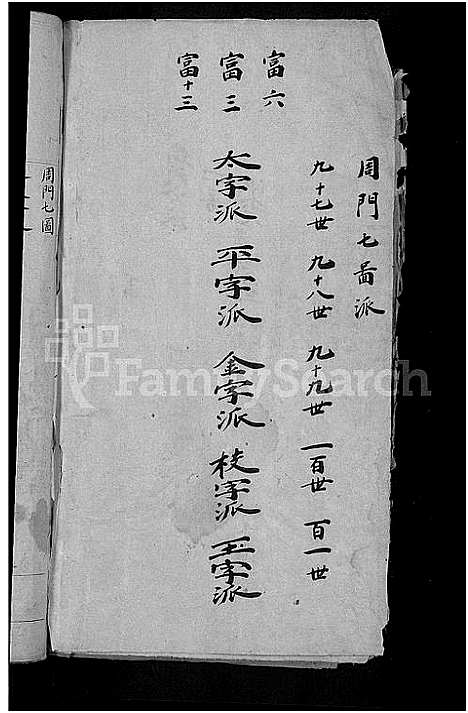 周門七啚派
九十七世 九十八世 九十九世 一百世 百一世
富六
富三 太字派 平字派 金字派 枝字派 玉字派
富十三
周門七圖
FamilySearch